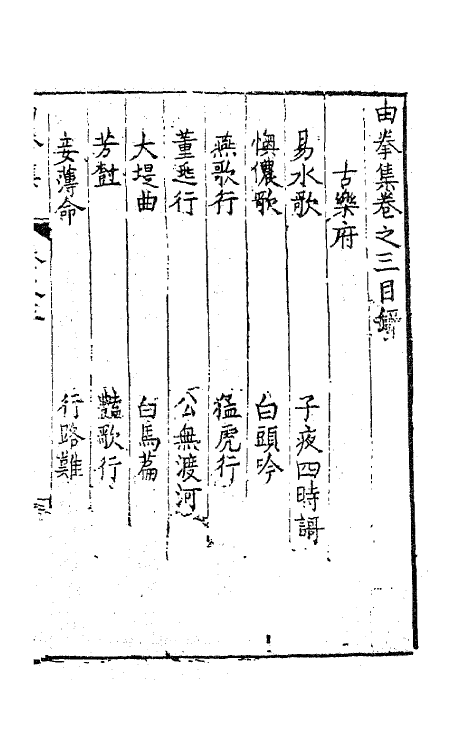 由拳集卷之三目錄
古樂府
易水歌 子夜四時謌
懊儂歌 白頭吟
燕歌行 猛虎行
董逃行 公無渡河
大堤曲 白馬篇
芳樹 豔歌行
妾薄命 行路難